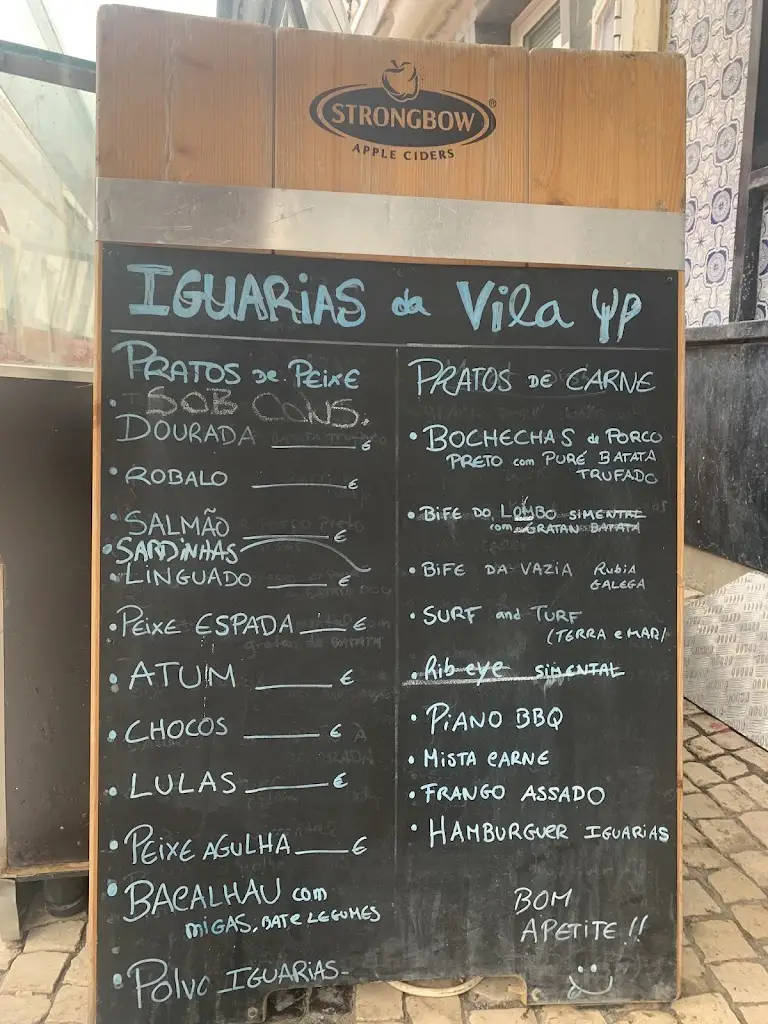 STRONGBOW
APPLE CIDERS
IGUARIAS da Vila
PRATOS DE PEIXE
SOB CONS.
DOURADA ____ €
ROBALO ____ €
SALMÃO ____ €
SARDINHAS
LINGUADO ____ €
PEIXE ESPADA ____ €
ATUM ____ €
CHOCOS ____ €
LULAS ____ €
PEIXE AGULHA ____ €
BACALHAU com
MIGAS, BAT e LEGUMES
POLVO IGUARIAS-
PRATOS DE CARNE
BOCHECHAS de PORCO
PRETO com PURÉ BATATA
TRUFADO
BIFE DO LOMBO SIMENTAL
com GRATAN BATATA
BIFE DA VAZIA RUBIA
GALEGA
SURF and TURF
(TERRA e MAR)
Rib eye SIMENTAL
PIANO BBQ
MISTA CARNE
FRANGO ASSADO
HAMBURGUER IGUARIAS
BOM
APETITE !!